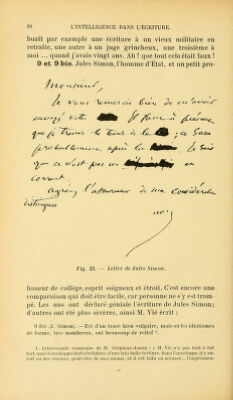 80 L'INTELLIGENCE DANS L'ÉCRITURE.
buait par exemple une écriture à un vieux militaire en
retraite, une autre à un juge grincheux, une troisième à
moi ... quand j'avais vingt ans. Ah ! que tout cela était faux !
9 et 9 bis. Jules Simon, l'homme d'État, et un petit pro-
Monsieur,
Je vous remercie bien de m'avoir
envoyé votre
que je trouve le temps de la ; ce sera
probablement après la Je sais
que ce n'est pas un en
courant.
agréez l'assurance de ma considération
distinguée
Fig. 23. — Lettre de Jules Simon.
fesseur de collège, esprit soigneux et étroit. C'est encore une
comparaison qui doit être facile, car personne ne s'y est trom-
pé. Les uns ont déclaré géniale l'écriture de Jules Simon;
d'autres ont été plus sévères, ainsi M. Vié écrit :
9 bis (J. Simon). — Est d'un tracé bien vulgaire, mais où les idiotismes
de forme, très nombreux, ont beaucoup de relief ¹.
1. Intéressante remarque de M. Crépieux-Jamin : « M. Vié n'a pas tout à fait
tort, mais l'enveloppe était d'une très belle écriture.